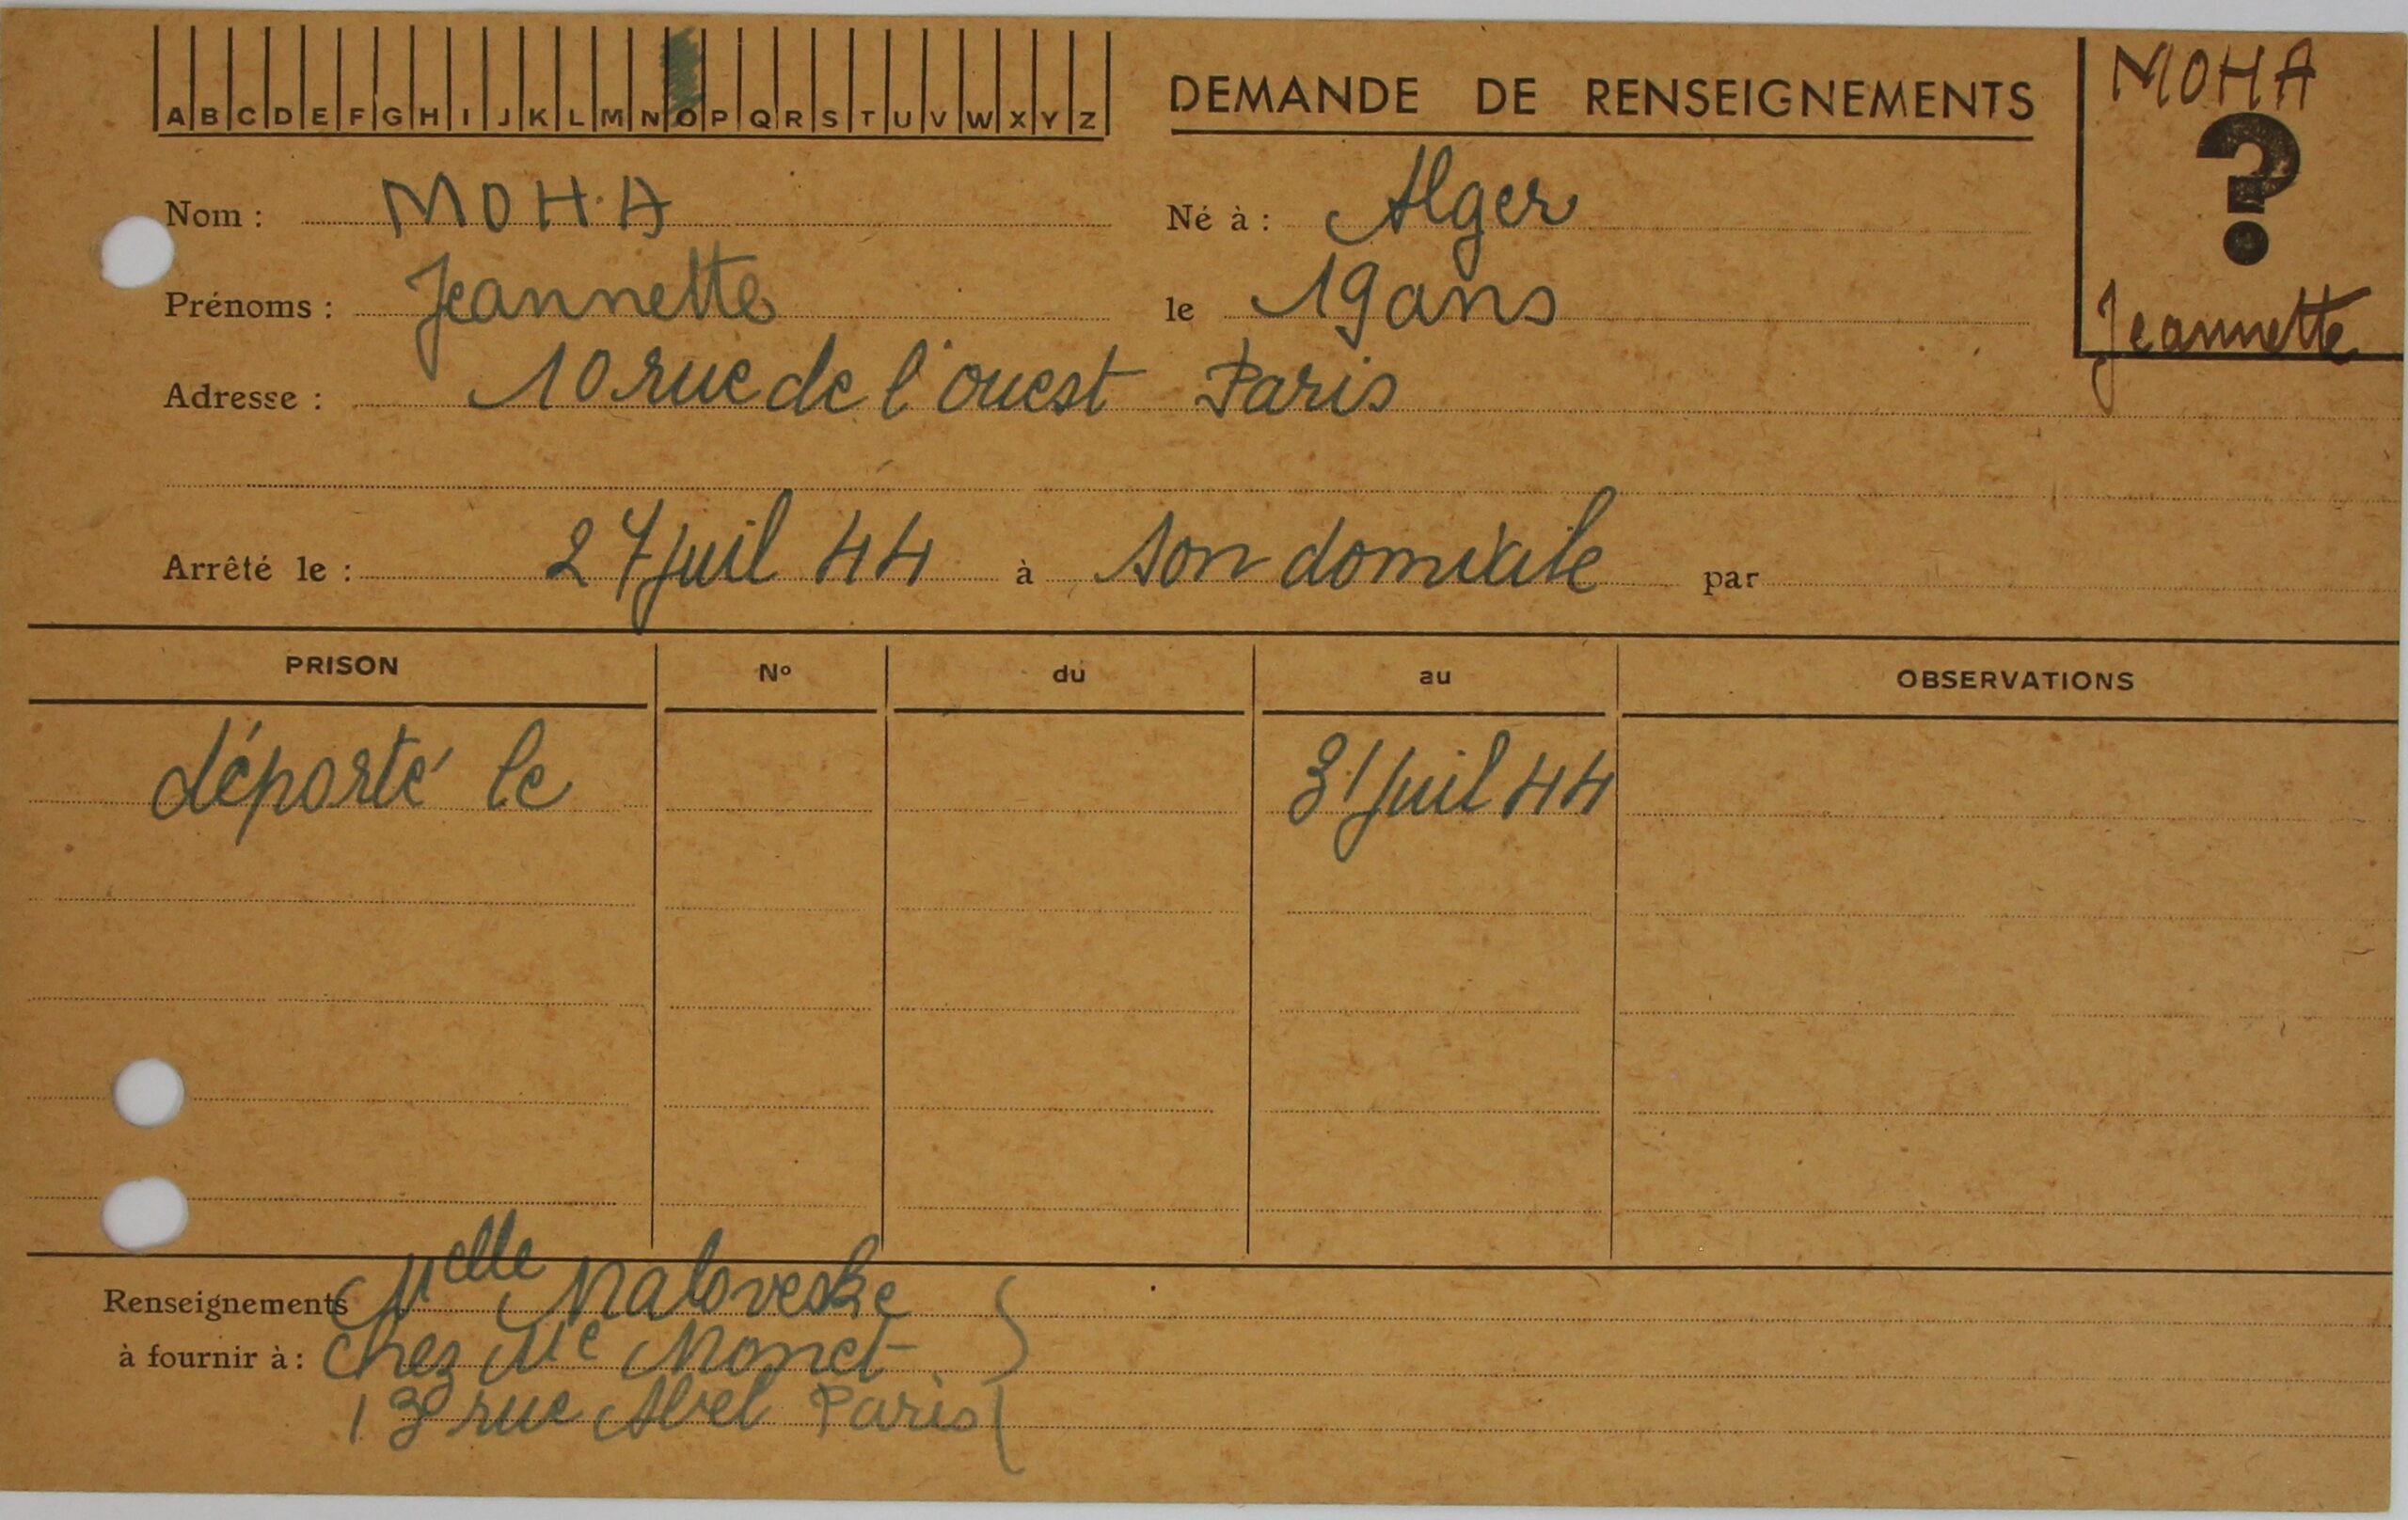 A B C D E F G H I J K L M N O P Q R S T U V W X Y Z
DEMANDE DE RENSEIGNEMENTS
MOHA
?
Jeannette
Nom : MOHA
Né à : Alger
Prénoms : Jeannette
le 19 ans
Adresse : 10 rue de l'ouest Paris
Arrêté le : 27 juil 44 à son domicile par
PRISON Nº du au OBSERVATIONS
déporté le 31 juil 44
Renseignements Melle
à fournir à : chez Me Monet
rue Abel Paris